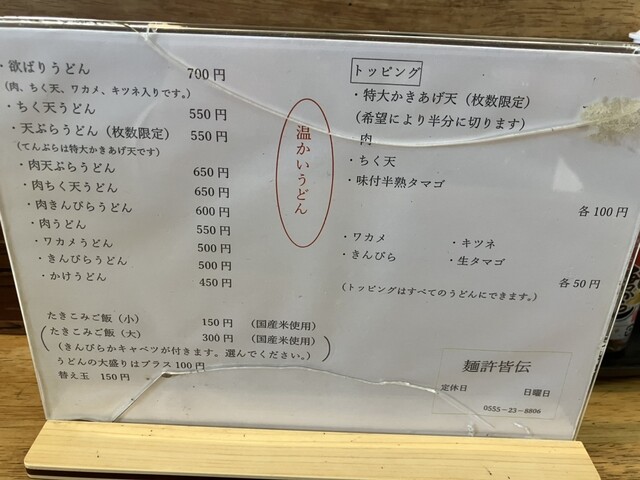 ・欲ばりうどん 700円
(肉、ちく天、ワカメ、キツネ入りです。)
・ちく天うどん 550円
・天ぷらうどん（枚数限定） 550円
(てんぷらは特大かきあげ天です)
・肉天ぷらうどん 650円
・肉ちく天うどん 650円
・肉きんぴらうどん 600円
・肉うどん 550円
・ワカメうどん 500円
・きんぴらうどん 500円
・かけうどん 450円
たきこみご飯（小） 150円 （国産米使用）
たきこみご飯（大） 300円 （国産米使用）
(きんぴらかキャベツが付きます。選んでください。)
うどんの大盛りはプラス100円
替え玉 150円
温かいうどん
トッピング
・特大かきあげ天（枚数限定）
(希望により半分に切ります)
・肉
・ちく天
・味付半熟タマゴ
各100円
・ワカメ ・キツネ
・きんぴら ・生タマゴ
各50円
(トッピングはすべてのうどんにできます。)
麺許皆伝
定休日 日曜日
0555－23－8806